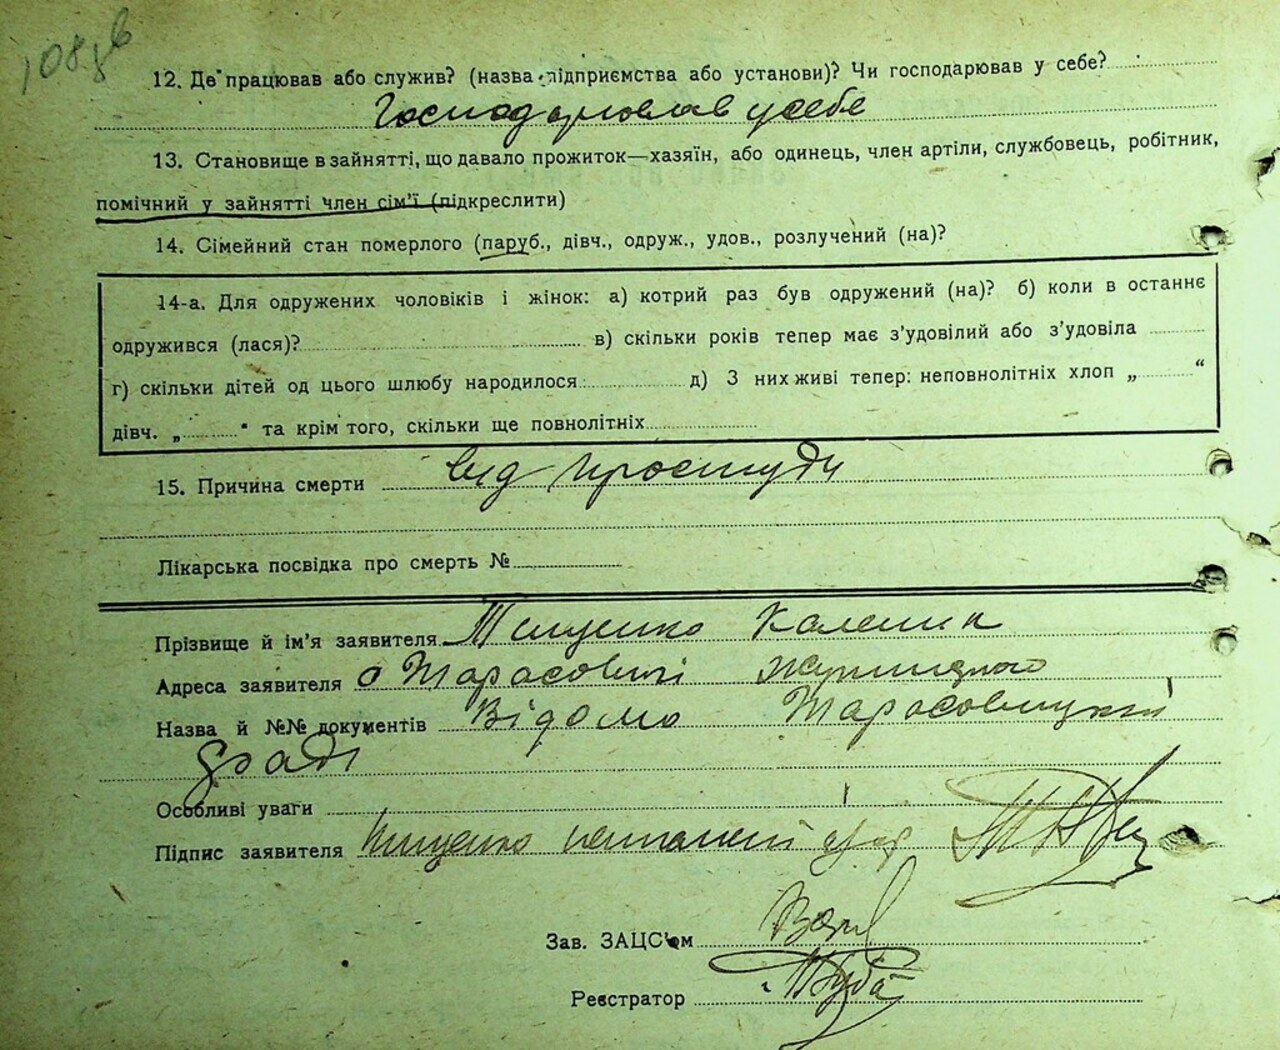 108 зв
12. Де працював або служив? (назва підприємства або установи)? Чи господарював у себе?
Господарював у себе
13. Становище в зайнятті, що давало прожиток—хазяїн, або одинець, член артіли, службовець, робітник,
помічний у зайнятті член сім'ї (підкреслити)
14. Сімейний стан померлого (паруб., дівч., одруж., удов., розлучений (на)?
14-а. Для одружених чоловіків і жінок: а) котрий раз був одружений (на)? б) коли в останнє
одружився (лася)? в) скільки років тепер має з'удовілий або з'удовіла
г) скільки дітей од цього шлюбу народилося: д) З них живі тепер: неповнолітніх хлоп „ “
дівч. „ “ та крім того, скільки ще повнолітніх
15. Причина смерти від простуди
Лікарська посвідка про смерть №
Прізвище й ім'я заявителя Тищенко Каленик
Адреса заявителя с Тарасовичі
Назва й №№ документів Відомо Тарасовицкій
зраді
Особливі уваги
Підпис заявителя Тищенко
Зав. ЗАЦС'ом
Реєстратор